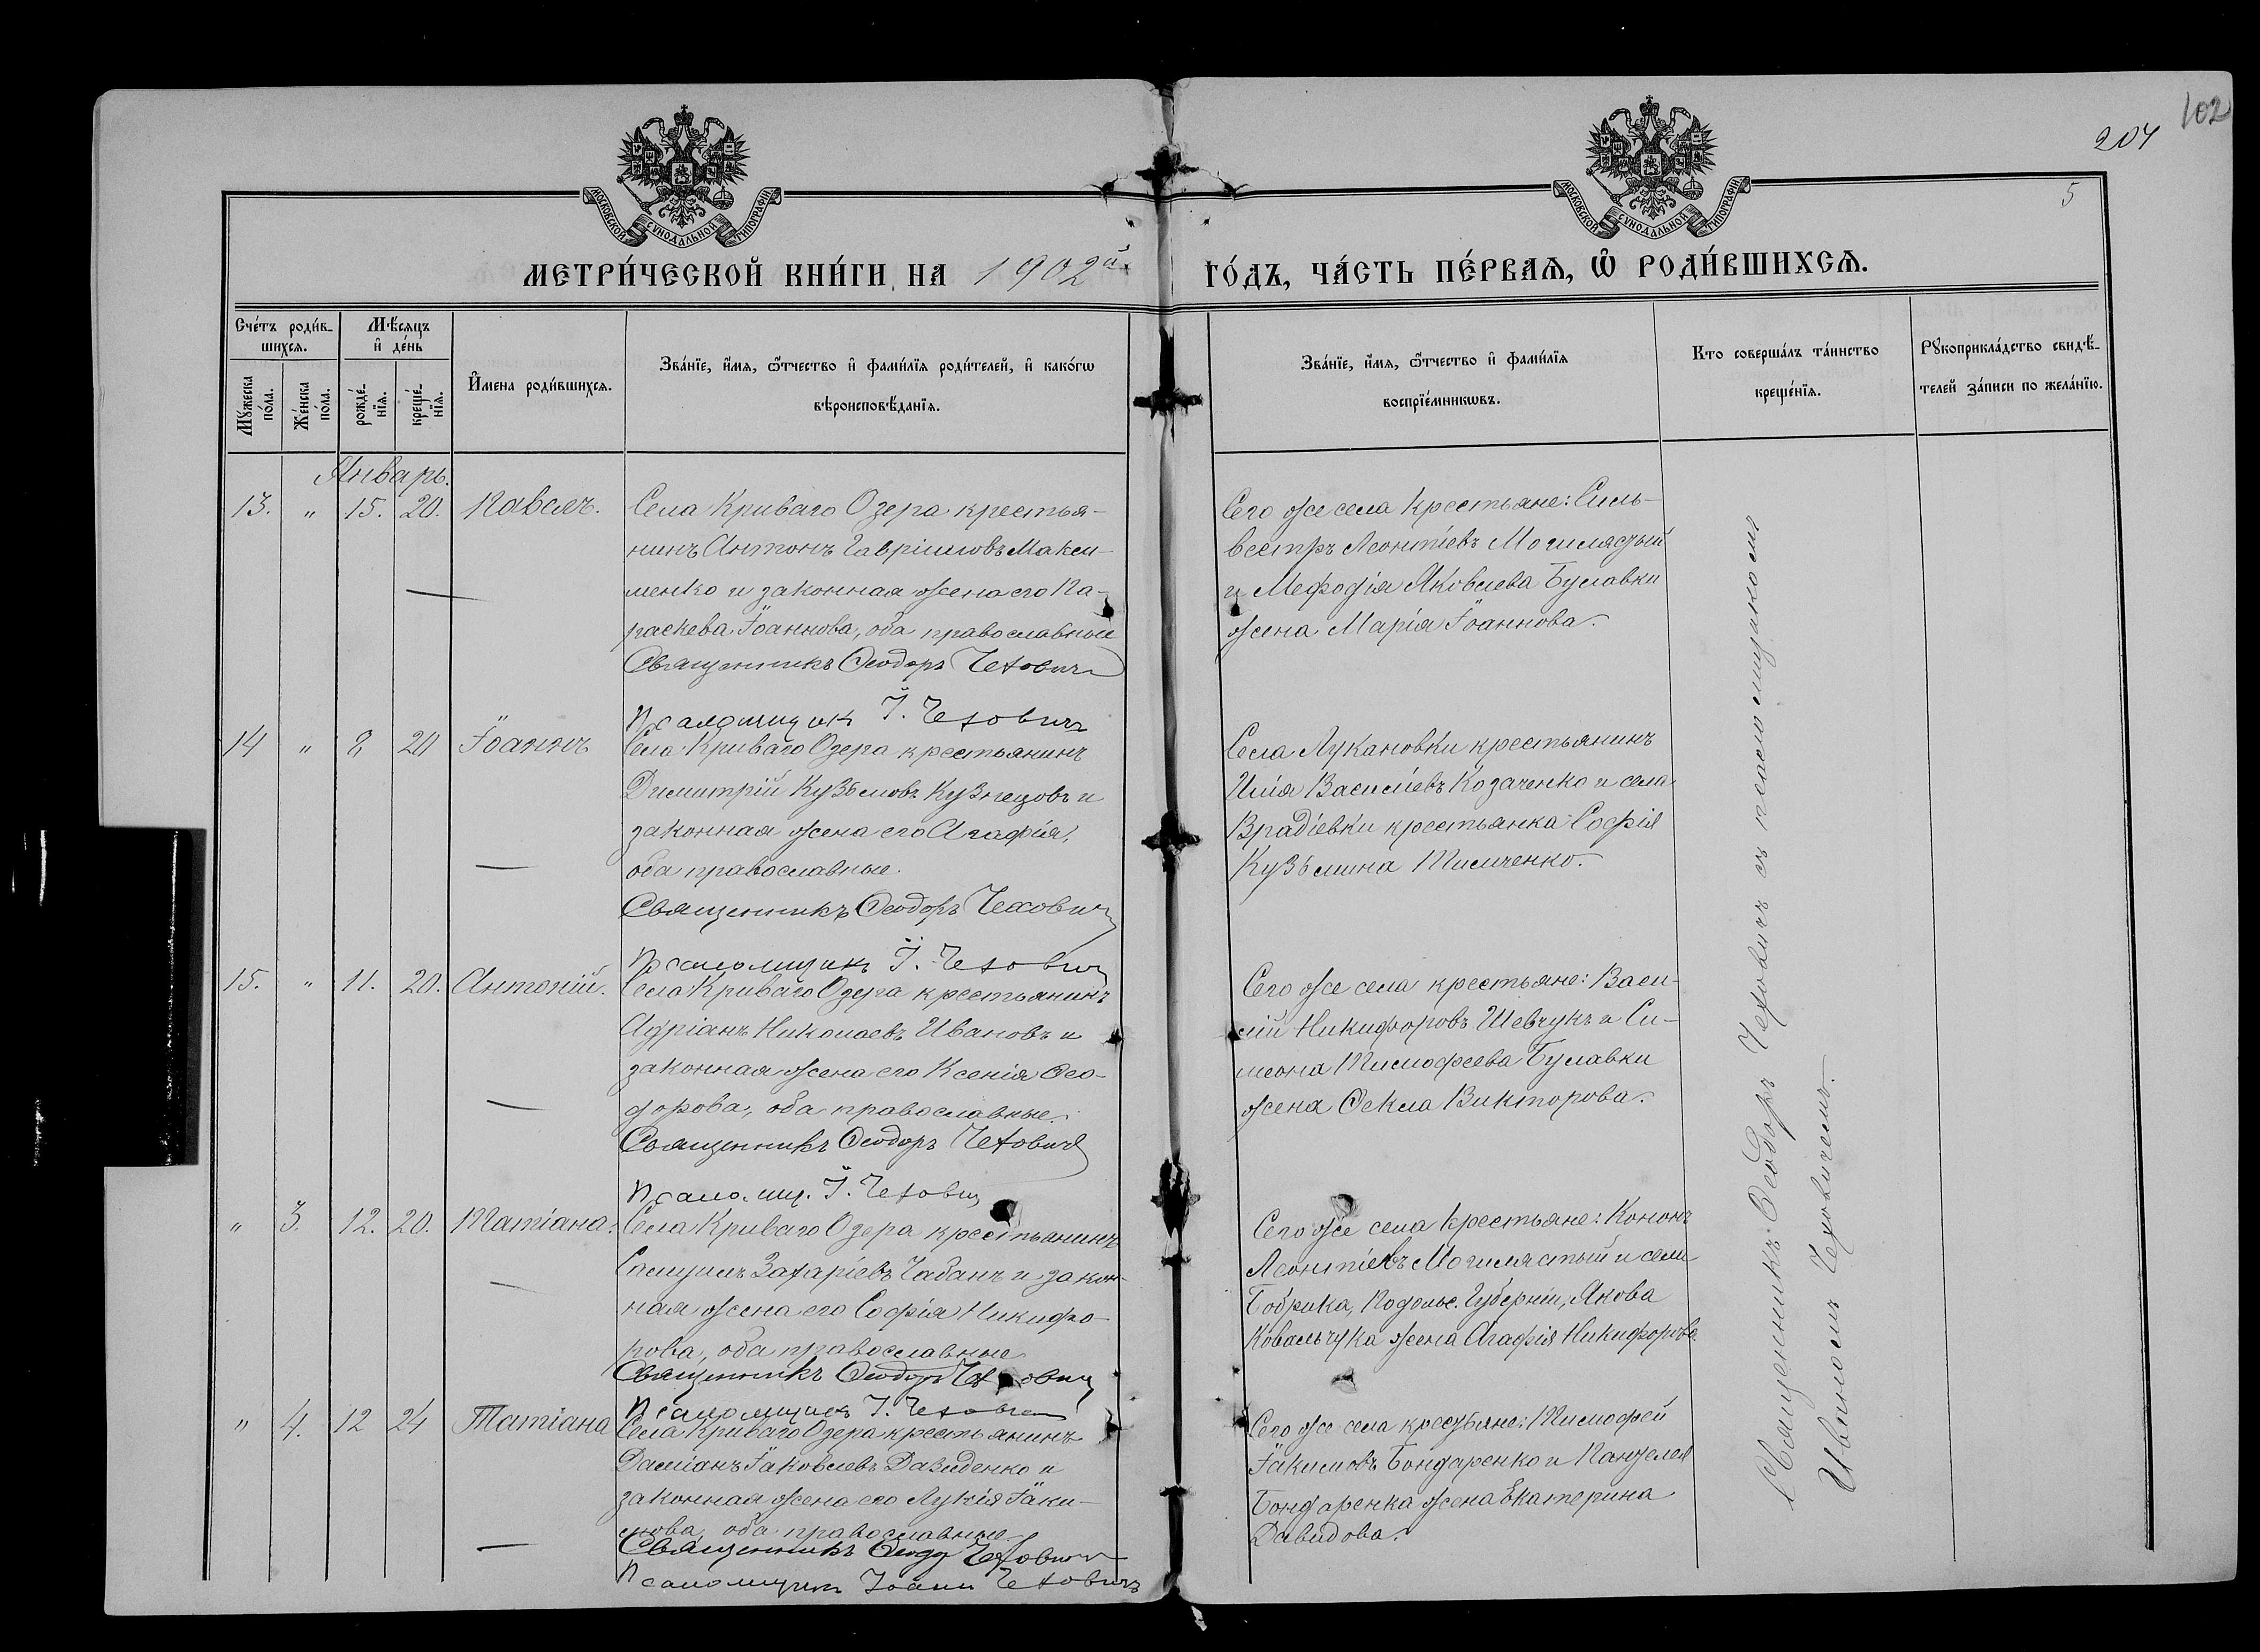 102
204
5
МОСКОВСКОЙ СѴНОДАЛЬНОЙ ТИПОГРАФІИ
МОСКОВСКОЙ СѴНОДАЛЬНОЙ ТИПОГРАФІИ
МЕТРИ́ЧЕСКОЙ КНИ́ГИ НА 1902й
ГО́ДЪ, ЧА́СТЬ ПЕ́РВАѦ, Ѡ҆ РОДИ́ВШИХСѦ.
Сче́тъ роди́в-
шихсѧ.
Мꙋ́жеска
по́ла.
Же́нска
по́ла.
Мѣ́сѧцъ
и҆ де́нь
рожде́-
нїѧ.
креще́-
нїѧ.
И҆мена роди́вшихсѧ.
Зва́нїе, и҆́мѧ, ѻ҆́тчество и҆ фами́лїѧ роди́телей, и҆ како́гѡ
вѣроисповѣ́данїѧ.
Зва́нїе, и҆́мѧ, ѻ҆́тчество и҆ фами́лїѧ
воспрїе́мникѡвъ.
Кто соверша́лъ та́инство
креще́нїѧ.
Рꙋкоприкла́дство свидѣ́-
телей за́писи по жела́нїю.
Январь.
13. " 15. 20. Павелъ.
Села Криваго Озера крестья-
нинъ Антонъ Гавріиловъ Макси-
менко и законная жена его Па-
раскева Іоаннова, оба православные
Священникъ Ѳеодоръ Чехович
Псаломщик І. Чехович
Сего же села крестьяне: Силь-
вестръ Леонтіевъ Могилястый
и Мефодія Яковлева Булавки
жена Марія Іоаннова.
14 " 8 20 Іоаннъ
Села Криваго Озера крестьянинъ
Димитрій Кузьмовъ Кузнецовъ и
законная жена его Агафія,
оба православные.
Священникъ Ѳеодоръ Чехович
Псаломщикъ І. Чехович
Села Лукановки крестьянинъ
Илія Василіевъ Козаченко и села
Врадіевки крестьянка Софія
Кузьмина Тимченко.
15. " 11. 20. Антоній.
Села Криваго Озера крестьянинъ
Адріанъ Николаевъ Ивановъ и
законная жена его Ксенія Ѳео-
дорова, оба православные.
Священникъ Ѳеодоръ Чехович
Псалом. І. Чехович
Сего же села крестьяне: Васи-
лій Никифоровъ Шевчукъ и Си-
меона Тимофеева Булавки
жена Ѳекла Викторова.
" 3. 12. 20. Татіана.
Села Криваго Озера крестьянинъ
Самуилъ Захаріевъ Чабанъ и закон-
ная жена его Софія Никифо-
рова, оба православные
Священникъ Ѳеодоръ Чехович
Псаломщикъ І. Чехович
Сего же села крестьяне: Кононъ
Леонтіевъ Могилястый и села
Бобрика, Подольс. Губерніи, Якова
Ковальчука жена Агафія Никифорова
" 4. 12 24 Татіана
Села Криваго Озера крестьянинъ
Даміанъ Іаковлевъ Давиденко и
законная жена его Лукія Іаки-
мова, оба православные.
Священникъ Ѳеод Чехович
Псаломщик Іоанн Чеховичъ
Сего же села крестьяне: Тимофей
Іакимовъ Бондаренко и Пантелея
Бондаренка жена Екатерина
Давидова.
Священникъ Ѳеодоръ Чеховичъ съ псаломщикомъ
Чеховичемъ.